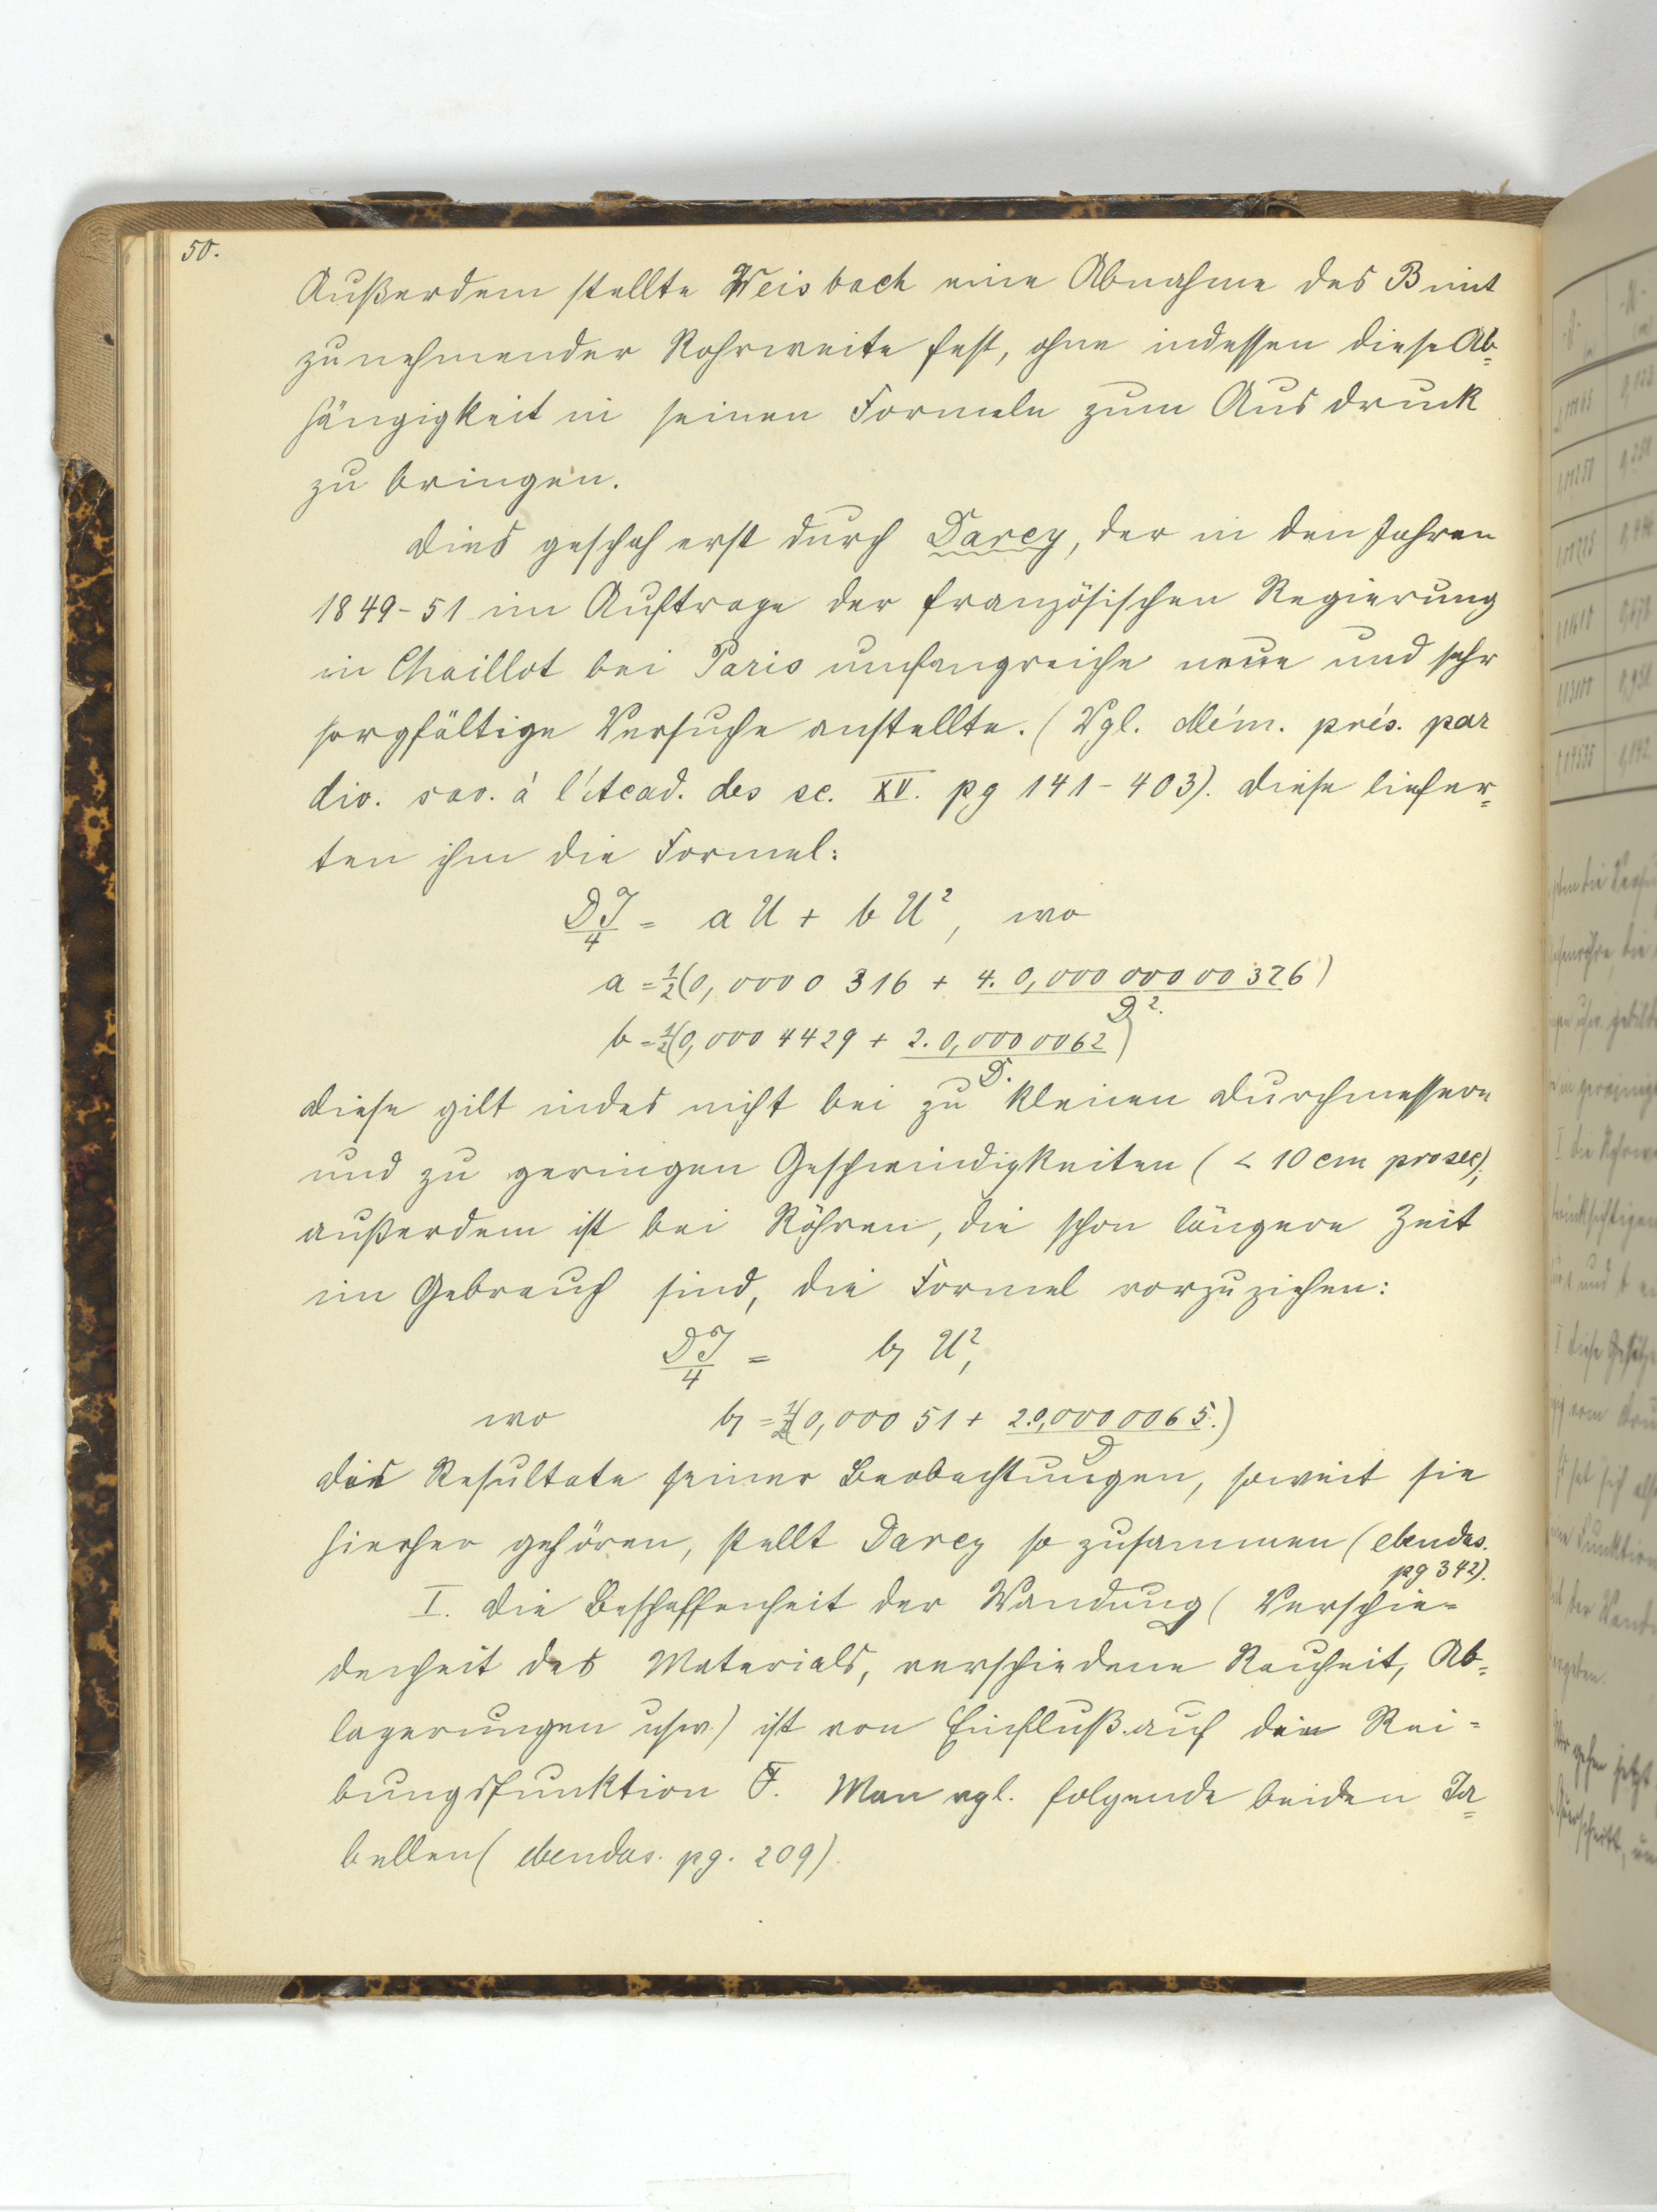 50.
Außerdem stellte Weisbach eine Abnahme des B mit
zunehmender Rohrweite fest, ohne indessen diese Ab=
hängigkeit in seinen Formeln zum Ausdruck
zu bringen.
Dies geschah erst durch Darcy, der in den Jahren
1849-51 im Auftrage der französischen Regierung
in Chaillot bei Paris umfangreiche neue und sehr
sorgfältige Versuche anstellte. (Vgl. Mém. prés. par
div. sav. à l'Acad. des sc. XV. pg 141-403). Diese liefer=
ten ihm die Formel:
DJ/4 = a U + b U², wo
a = ½(0,0000 316 + 4. 0,000 000 00 326/D².)
b = ½(0,000 4429 + 2. 0,000 0062/D.)
Diese gilt indes nicht bei zu kleinen Durchmessern
und zu geringen Geschwindigkeiten (< 10 cm pro sec);
außerdem ist bei Röhren, die schon längere Zeit
im Gebrauch sind, die Formel vorzuziehen:
DJ/4 = b₁ U²,
wo b₁ = ½(0,000 51 + 2.0,000 0065./D)
Die Resultate seiner Beobachtungen, soweit sie
hierher gehören, stellt Darcy so zusammen (ebendas.
pg 342).
I. Die Beschaffenheit der Wandung (Verschie=
denheit des Materials, verschiedene Rauheit, Ab=
lagerungen usw.) ist von Einfluß auf die Rei=
bungsfunktion F. Man vgl. folgende beiden Ta=
bellen (ebendas. pg. 209).